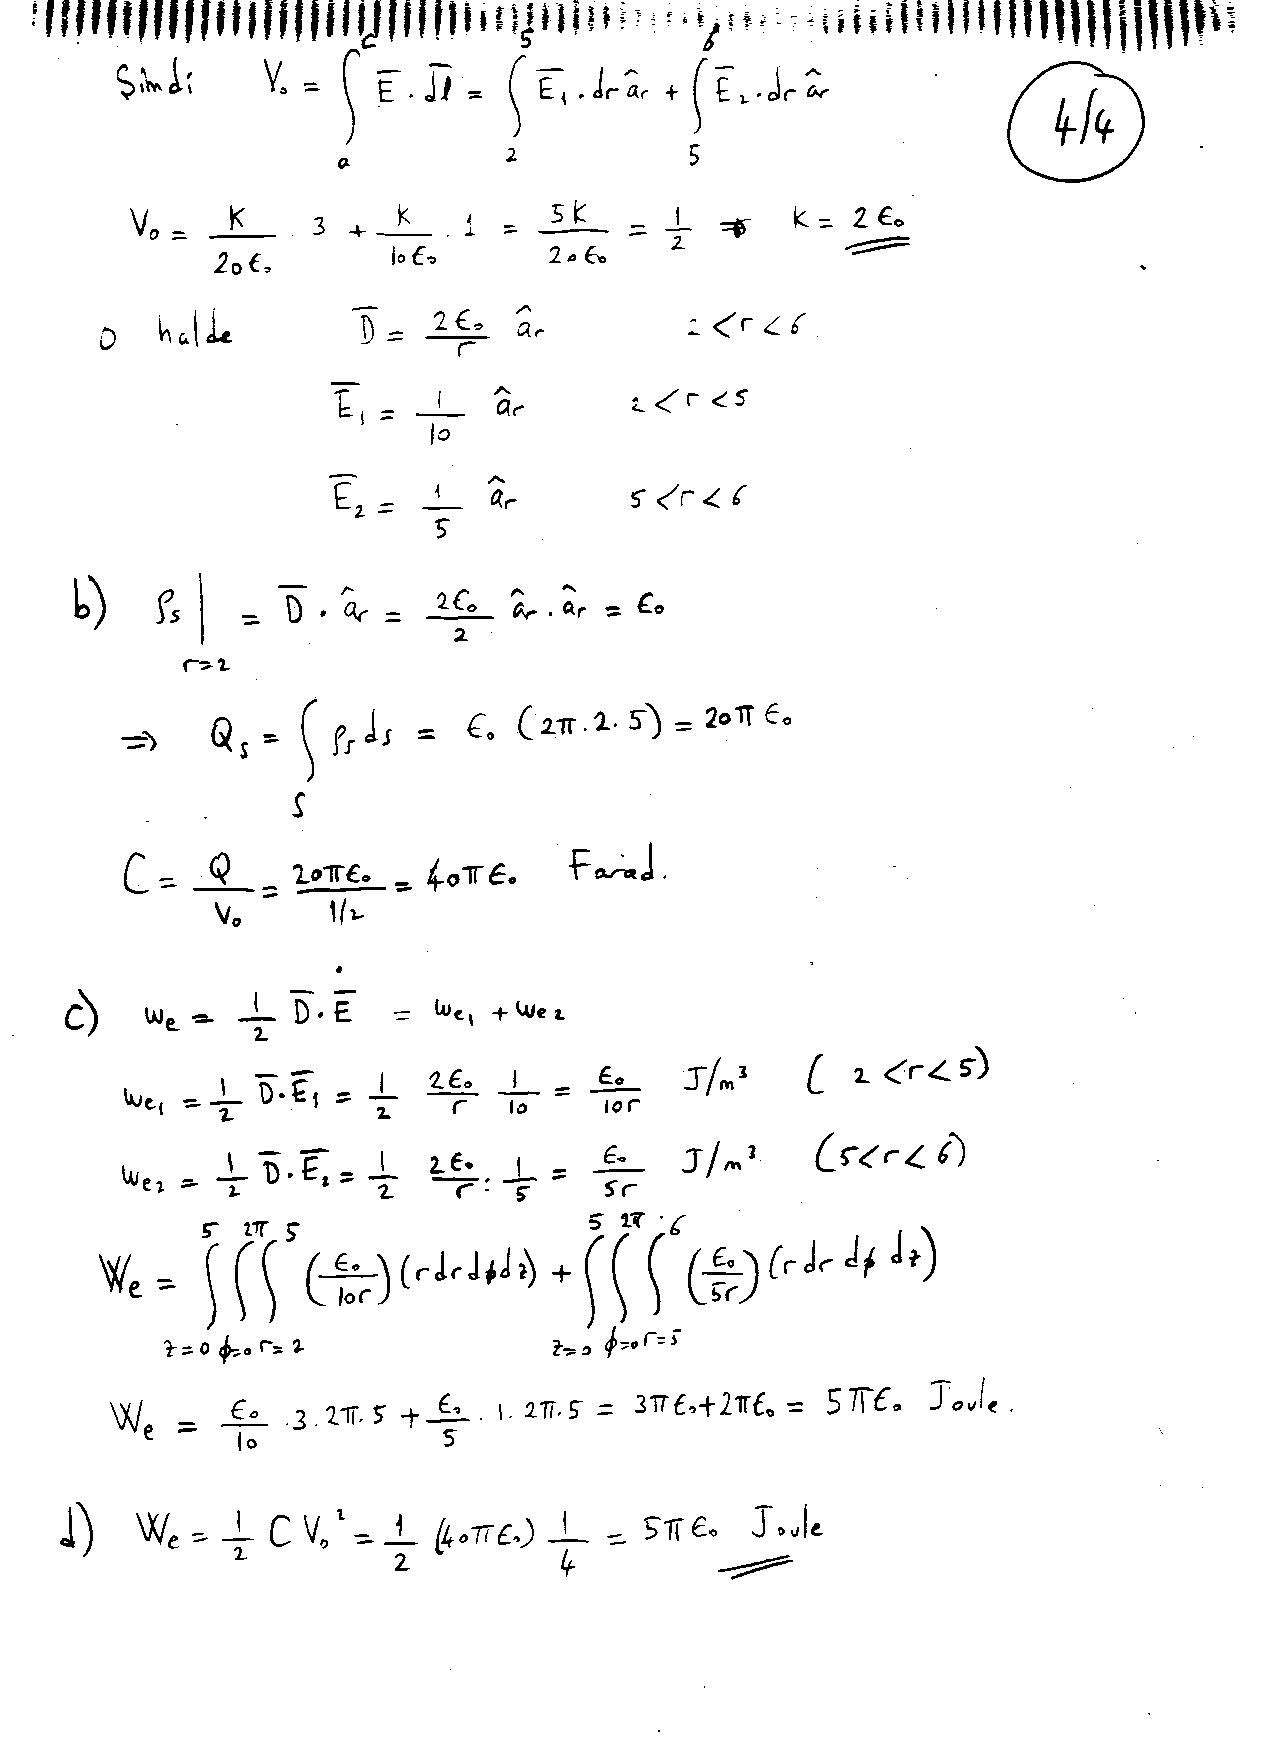 Şimdi V₀ = ∫ₐᶜ E̅ . d̅l̅ = ∫₂⁵ E̅₁ . dr âr + ∫₅⁶ E̅₂ . dr âr
4/4
V₀ = K/20ϵ₀ . 3 + K/10ϵ₀ . 1 = 5K/20ϵ₀ = 1/2 ⇒ K = 2ϵ₀
O halde D̅ = 2ϵ₀/r âr 2<r<6
E̅₁ = 1/10 âr 2<r<5
E̅₂ = 1/5 âr 5<r<6
b) ρs|r=2 = D̅ . âr = 2ϵ₀/2 âr . âr = ϵ₀
⇒ Qs = ∫S ρs ds = ϵ₀ (2π.2.5) = 20πϵ₀
C = Q/V₀ = 20πϵ₀/1/2 = 40πϵ₀ Farad.
c) we = 1/2 D̅ . E̅ = we₁ + we₂
we₁ = 1/2 D̅.E̅₁ = 1/2 2ϵ₀/r 1/10 = ϵ₀/10r J/m³ (2<r<5)
we₂ = 1/2 D̅.E̅₂ = 1/2 2ϵ₀/r . 1/5 = ϵ₀/5r J/m³ (5<r<6)
We = ∫z=0⁵ ∫ϕ=0²π ∫r=2⁵ (ϵ₀/10r)(r dr dϕ dz) + ∫z=0⁵ ∫ϕ=0²π ∫r=5⁶ (ϵ₀/5r)(r dr dϕ dz)
We = ϵ₀/10 .3.2π.5 + ϵ₀/5 .1.2π.5 = 3πϵ₀+2πϵ₀ = 5πϵ₀ Joule.
d) We = 1/2 C V₀² = 1/2 (40πϵ₀) 1/4 = 5πϵ₀ Joule